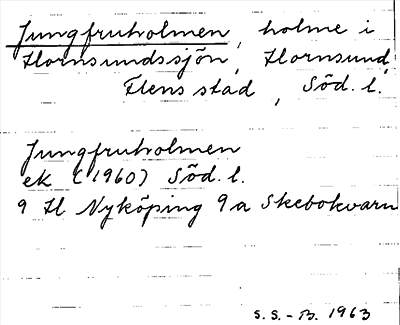 Jungfruholmen, holme i
Hornsundssjön, Hornsund,
Flens stad, Söd. l.
Jungfruholmen
ek (1960) Söd. l.
9 H Nyköping 9 a Skebokvarn
S. S. - B. 1963